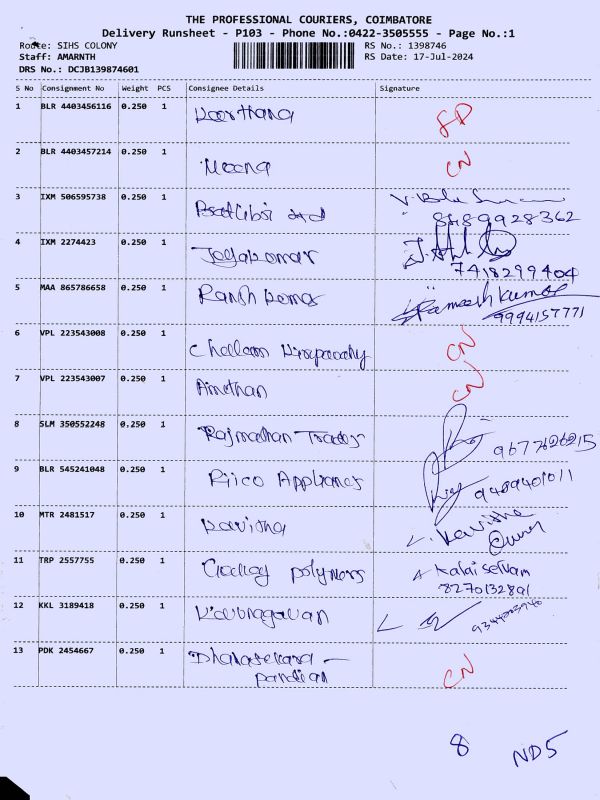 THE PROFESSIONAL COURIERS, COIMBATORE
Delivery Runsheet - P103 - Phone No.:0422-3505555 - Page No.:1
Route: SIHS COLONY RS No.: 1398746
Staff: AMARNTH RS Date: 17-Jul-2024
DRS No.: DCJB139874601
S No Consignment No Weight PCS Consignee Details Signature
1 BLR 4403456116 0.250 1 Keerthana
2 BLR 4403457214 0.250 1 Meena CN
3 IXM 506595738 0.250 1
8489928362
4 IXM 2274423 0.250 1 Jeyakumar
7418299404
5 MAA 865786658 0.250 1 Ramesh kumar
9994157771
6 VPL 223543008 0.250 1 CN
7 VPL 223543007 0.250 1 CN
8 SLM 350552248 0.250 1 Rajmathan Traders 9677626215
9 BLR 545241048 0.250 1 Appliances 9489401011
10 MTR 2481517 0.250 1 Kavisha
11 TRP 2557755 0.250 1 polymers Kalai selvam
8270132891
12 KKL 3189418 0.250 1
13 PDK 2454667 0.250 1 Dhanasekara -
pandian CN
8 ND5